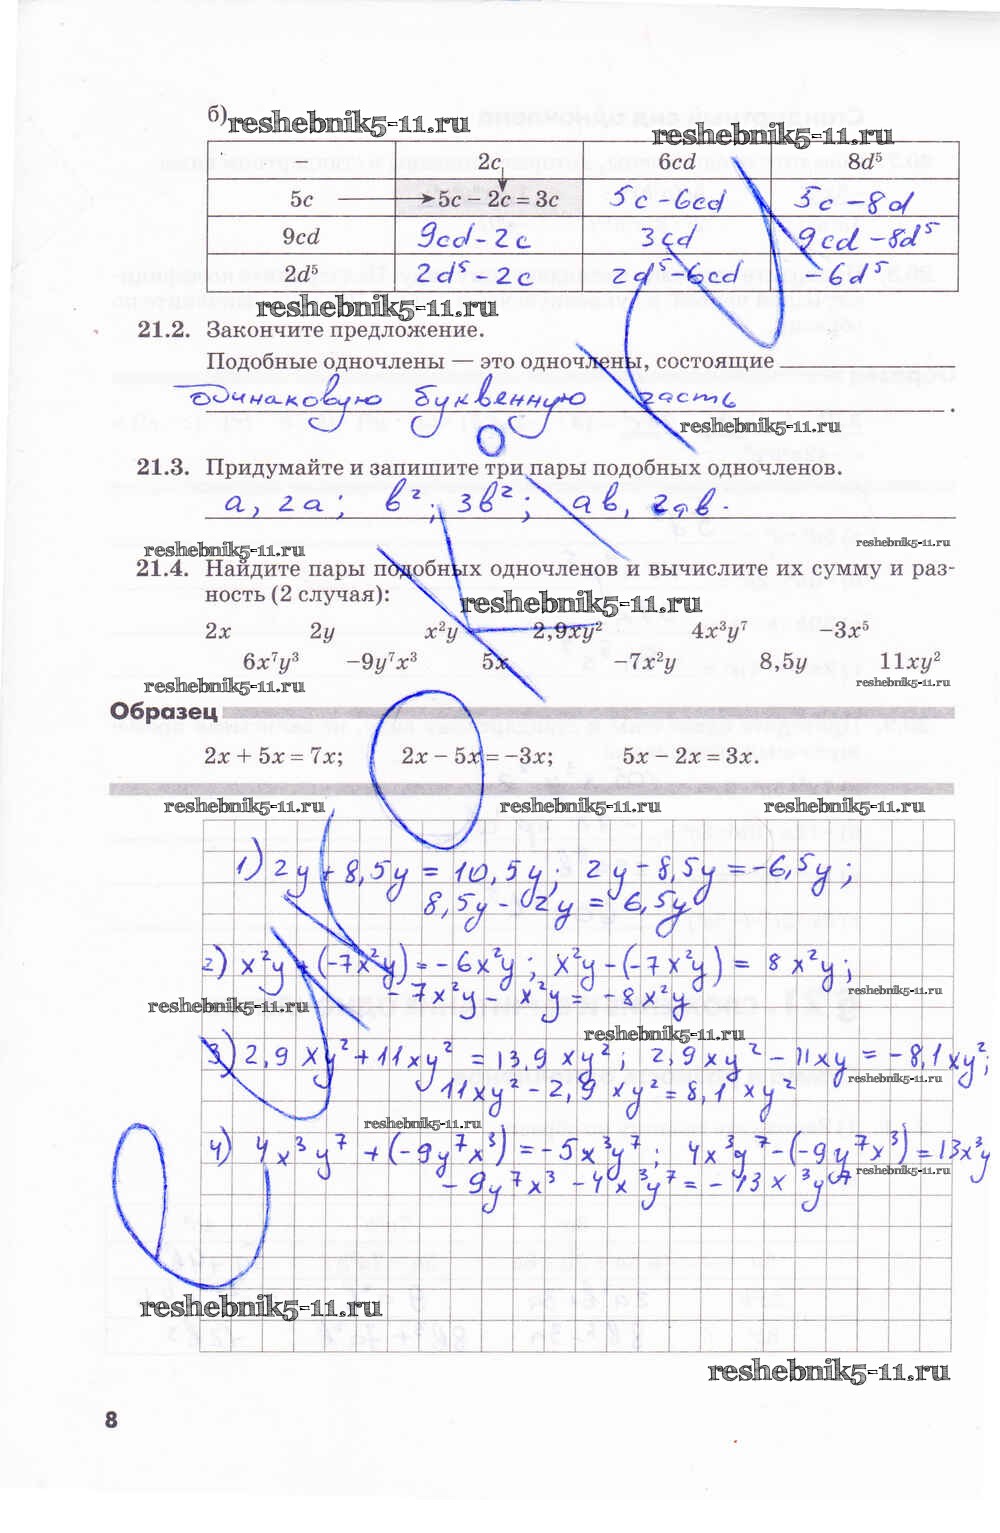 б)
reshebnik5-11.ru
reshebnik5-11.ru
– 2c 6cd 8d⁵
5c 5c – 2c = 3c 5c – 6cd 5c – 8d
9cd 9cd – 2c 3cd 9cd – 8d⁵
2d⁵ 2d⁵ – 2c 2d⁵ – 6cd – 6d⁵
reshebnik5-11.ru
21.2. Закончите предложение.
Подобные одночлены — это одночлены, состоящие
одинаковую буквенную часть.
reshebnik5-11.ru
21.3. Придумайте и запишите три пары подобных одночленов.
a, 2a; b², 3b²; ab, 2ab.
reshebnik5-11.ru
reshebnik5-11.ru
21.4. Найдите пары подобных одночленов и вычислите их сумму и раз-
ность (2 случая):
reshebnik5-11.ru
2x 2y x²y 2,9xy² 4x³y⁷ –3x⁵
6x⁷y³ –9y⁷x³ 5x –7x²y 8,5y 11xy²
reshebnik5-11.ru
reshebnik5-11.ru
Образец
2x + 5x = 7x; 2x – 5x = –3x; 5x – 2x = 3x.
reshebnik5-11.ru reshebnik5-11.ru reshebnik5-11.ru
1) 2y + 8,5y = 10,5y; 2y – 8,5y = –6,5y;
8,5y – 2y = 6,5y
2) x²y + (–7x²y) = –6x²y; x²y – (–7x²y) = 8x²y;
–7x²y – x²y = –8x²y
reshebnik5-11.ru
reshebnik5-11.ru
reshebnik5-11.ru
3) 2,9xy² + 11xy² = 13,9xy²; 2,9xy² – 11xy = –8,1xy²;
11xy² – 2,9xy² = 8,1xy²
reshebnik5-11.ru
reshebnik5-11.ru
4) 4x³y⁷ + (–9y⁷x³) = –5x³y⁷; 4x³y⁷ – (–9y⁷x³) = 13x³y
–9y⁷x³ – 4x³y⁷ = –13x³y⁷
reshebnik5-11.ru
reshebnik5-11.ru
reshebnik5-11.ru
8